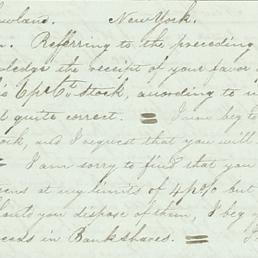 owland. New York.
. Referring to the preceding
ledge the receipt of your favor
's 6 p Ct Stock, according to
t quite correct. = I now beg to
ock, and I request that you will
I am sorry to find that you
at my limits of 4 p % but
you dispose of them, I beg y
ceeds in Bank shares. =